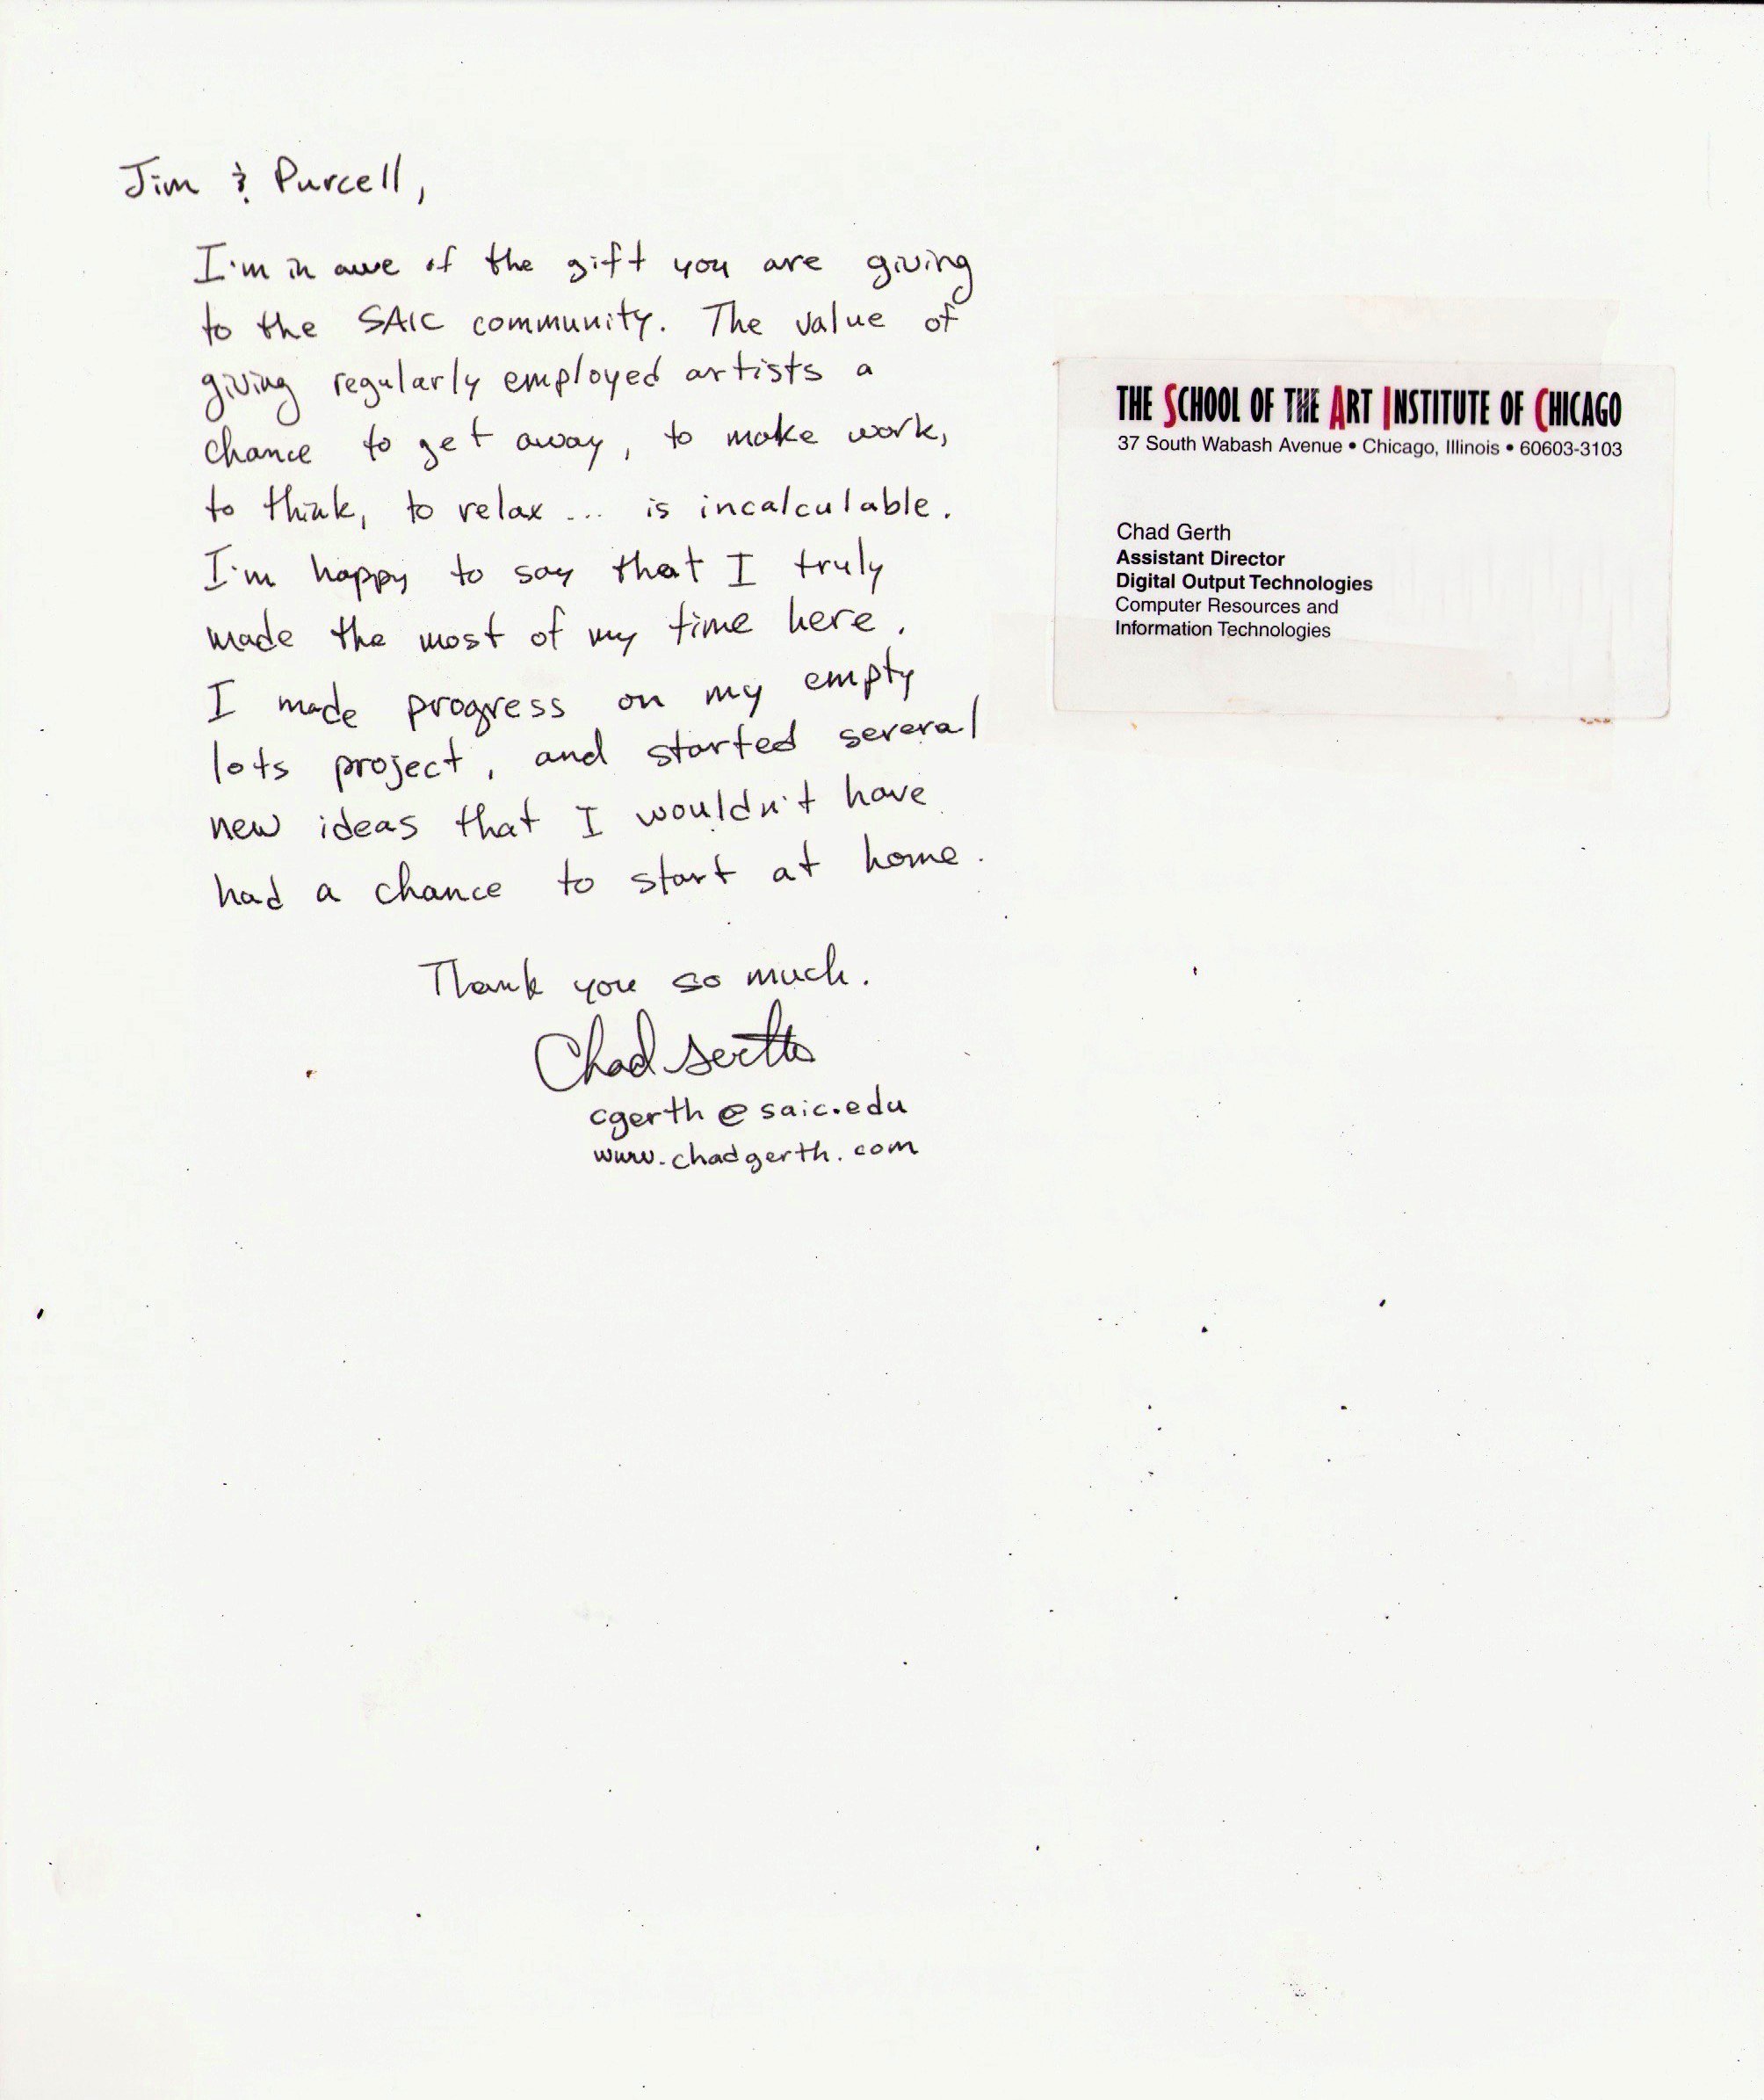 Jim & Purcell,
I'm in awe of the gift you are giving
to the SAIC community. The value of
giving regularly employed artists a
chance to get away, to make work,
to think, to relax ... is incalculable.
I'm happy to say that I truly
made the most of my time here.
I made progress on my empty
lots project, and started several
new ideas that I wouldn't have
had a chance to start at home.
Thank you so much.
Chad Gerth
cgerth@saic.edu
www.chadgerth.com
THE SCHOOL OF THE ART INSTITUTE OF CHICAGO
37 South Wabash Avenue • Chicago, Illinois • 60603-3103
Chad Gerth
Assistant Director
Digital Output Technologies
Computer Resources and
Information Technologies